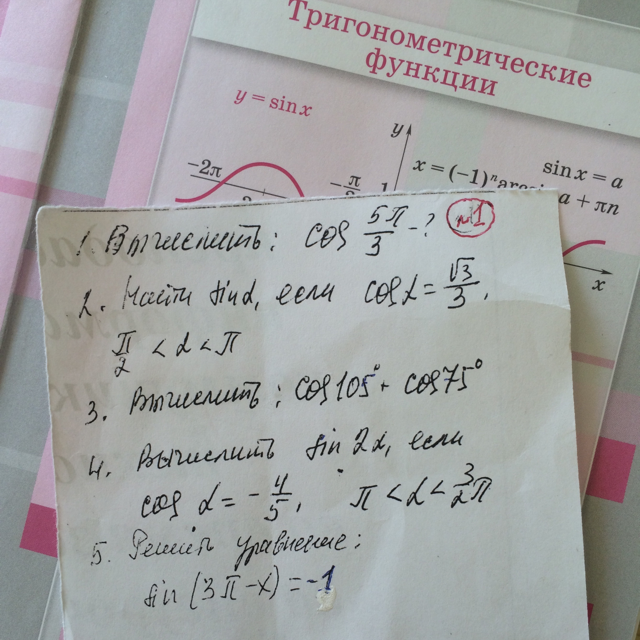 Тригонометрические
функции
y = sin x
y
-2π
-π/2
1
x = (-1)ⁿ
sin x = a
a + πn
x
1. Вычислить: cos 5π/3 - ? №1
2. Найти sin α, если cos α = √3/3,
π/2 < α < π
3. Вычислить: cos 105° + cos 75°
4. Вычислить sin 2α, если
cos α = - 4/5, π < α < 3/2 π
5. Решить уравнение:
sin (3π - x) = -1